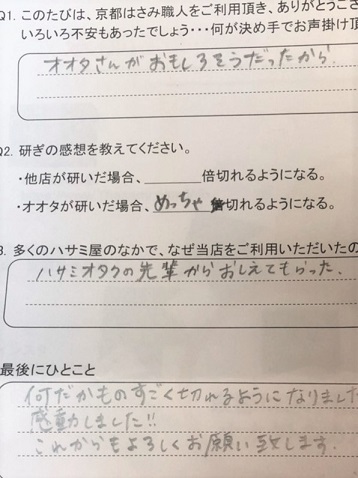 Q1. このたびは、京都はさみ職人をご利用頂き、ありがとうござ
いろいろ不安もあったでしょう・・・何が決め手でお声掛け頂
オオタさんがおもしろそうだったから
Q2. 研ぎの感想を教えてください。
・他店が研いだ場合、______倍切れるようになる。
・オオタが研いだ場合、めっちゃ切れるようになる。
3. 多くのハサミ屋のなかで、なぜ当店をご利用いただいたの
ハサミオタクの先輩からおしえてもらった.
最後にひとこと
何だかものすごく切れるようになりました
感動しました!!
これからもよろしくお願い致します.